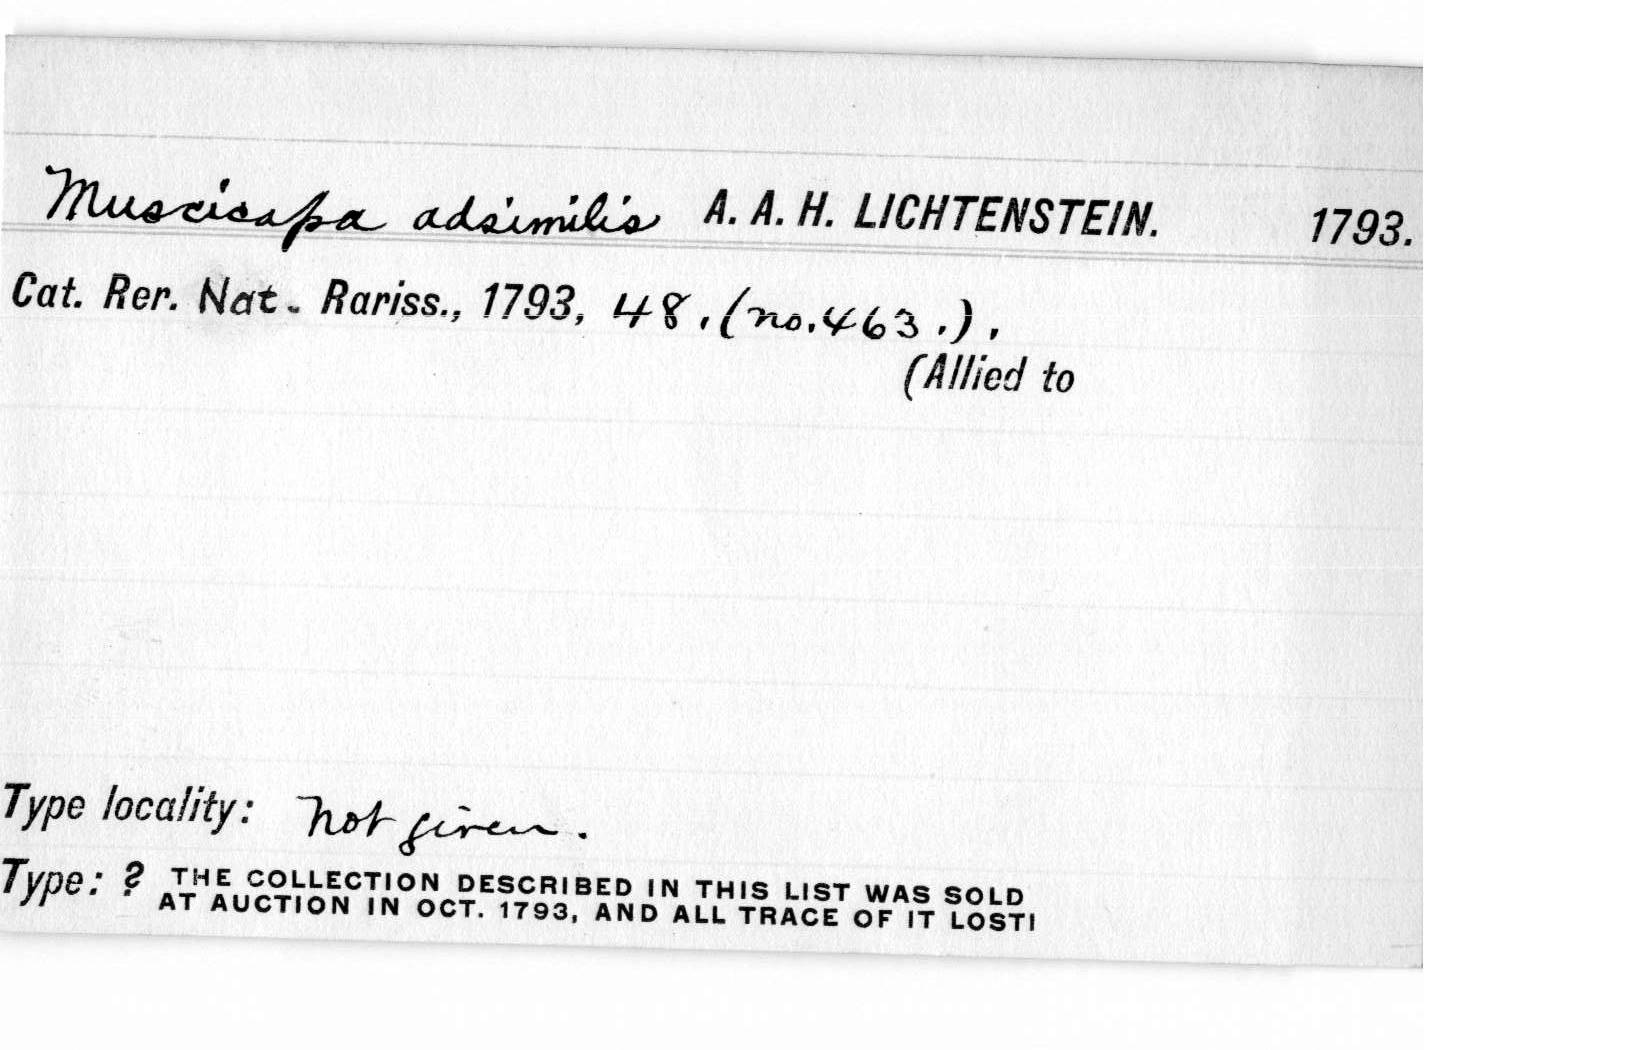 Muscicapa adsimilis A. A. H. LICHTENSTEIN. 1793.
Cat. Rer. Nat. Rariss., 1793, 48, (no. 463.).
(Allied to
Type locality: not given.
Type: ? THE COLLECTION DESCRIBED IN THIS LIST WAS SOLD
AT AUCTION IN OCT. 1793, AND ALL TRACE OF IT LOST!